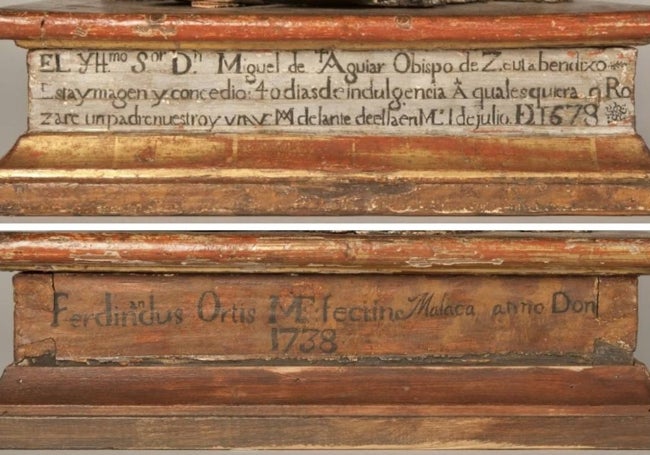 EL Yllmo Sor Dn Miguel de Aguiar Obispo de Zeuta bendixo
Esta ymagen y concedio: 40 dias de indulgencia A qualesquiera q Ro
zare un padre nuestro y un AVE MA delante de ella en Ma 1 de julio. D 1678
Ferdinandus Ortis ME fecit in Malaca anno Don
1738